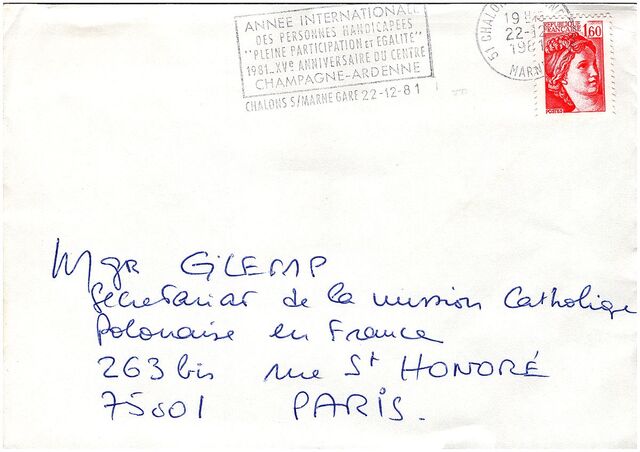 ANNEE INTERNATIONALE
DES PERSONNES HANDICAPEES
"PLEINE PARTICIPATION et EGALITE"
1981_XVe ANNIVERSAIRE DU CENTRE
CHAMPAGNE-ARDENNE
CHALONS S/MARNE GARE 22-12-81
51 CHALONS
19 H
22-12
1981
MARNE
REPUBLIQUE FRANÇAISE
1,60
Mgr GLEMP
Secretariat de la mission Catholique
Polonaise en France
263 bis rue St HONORÉ
75001 PARIS.